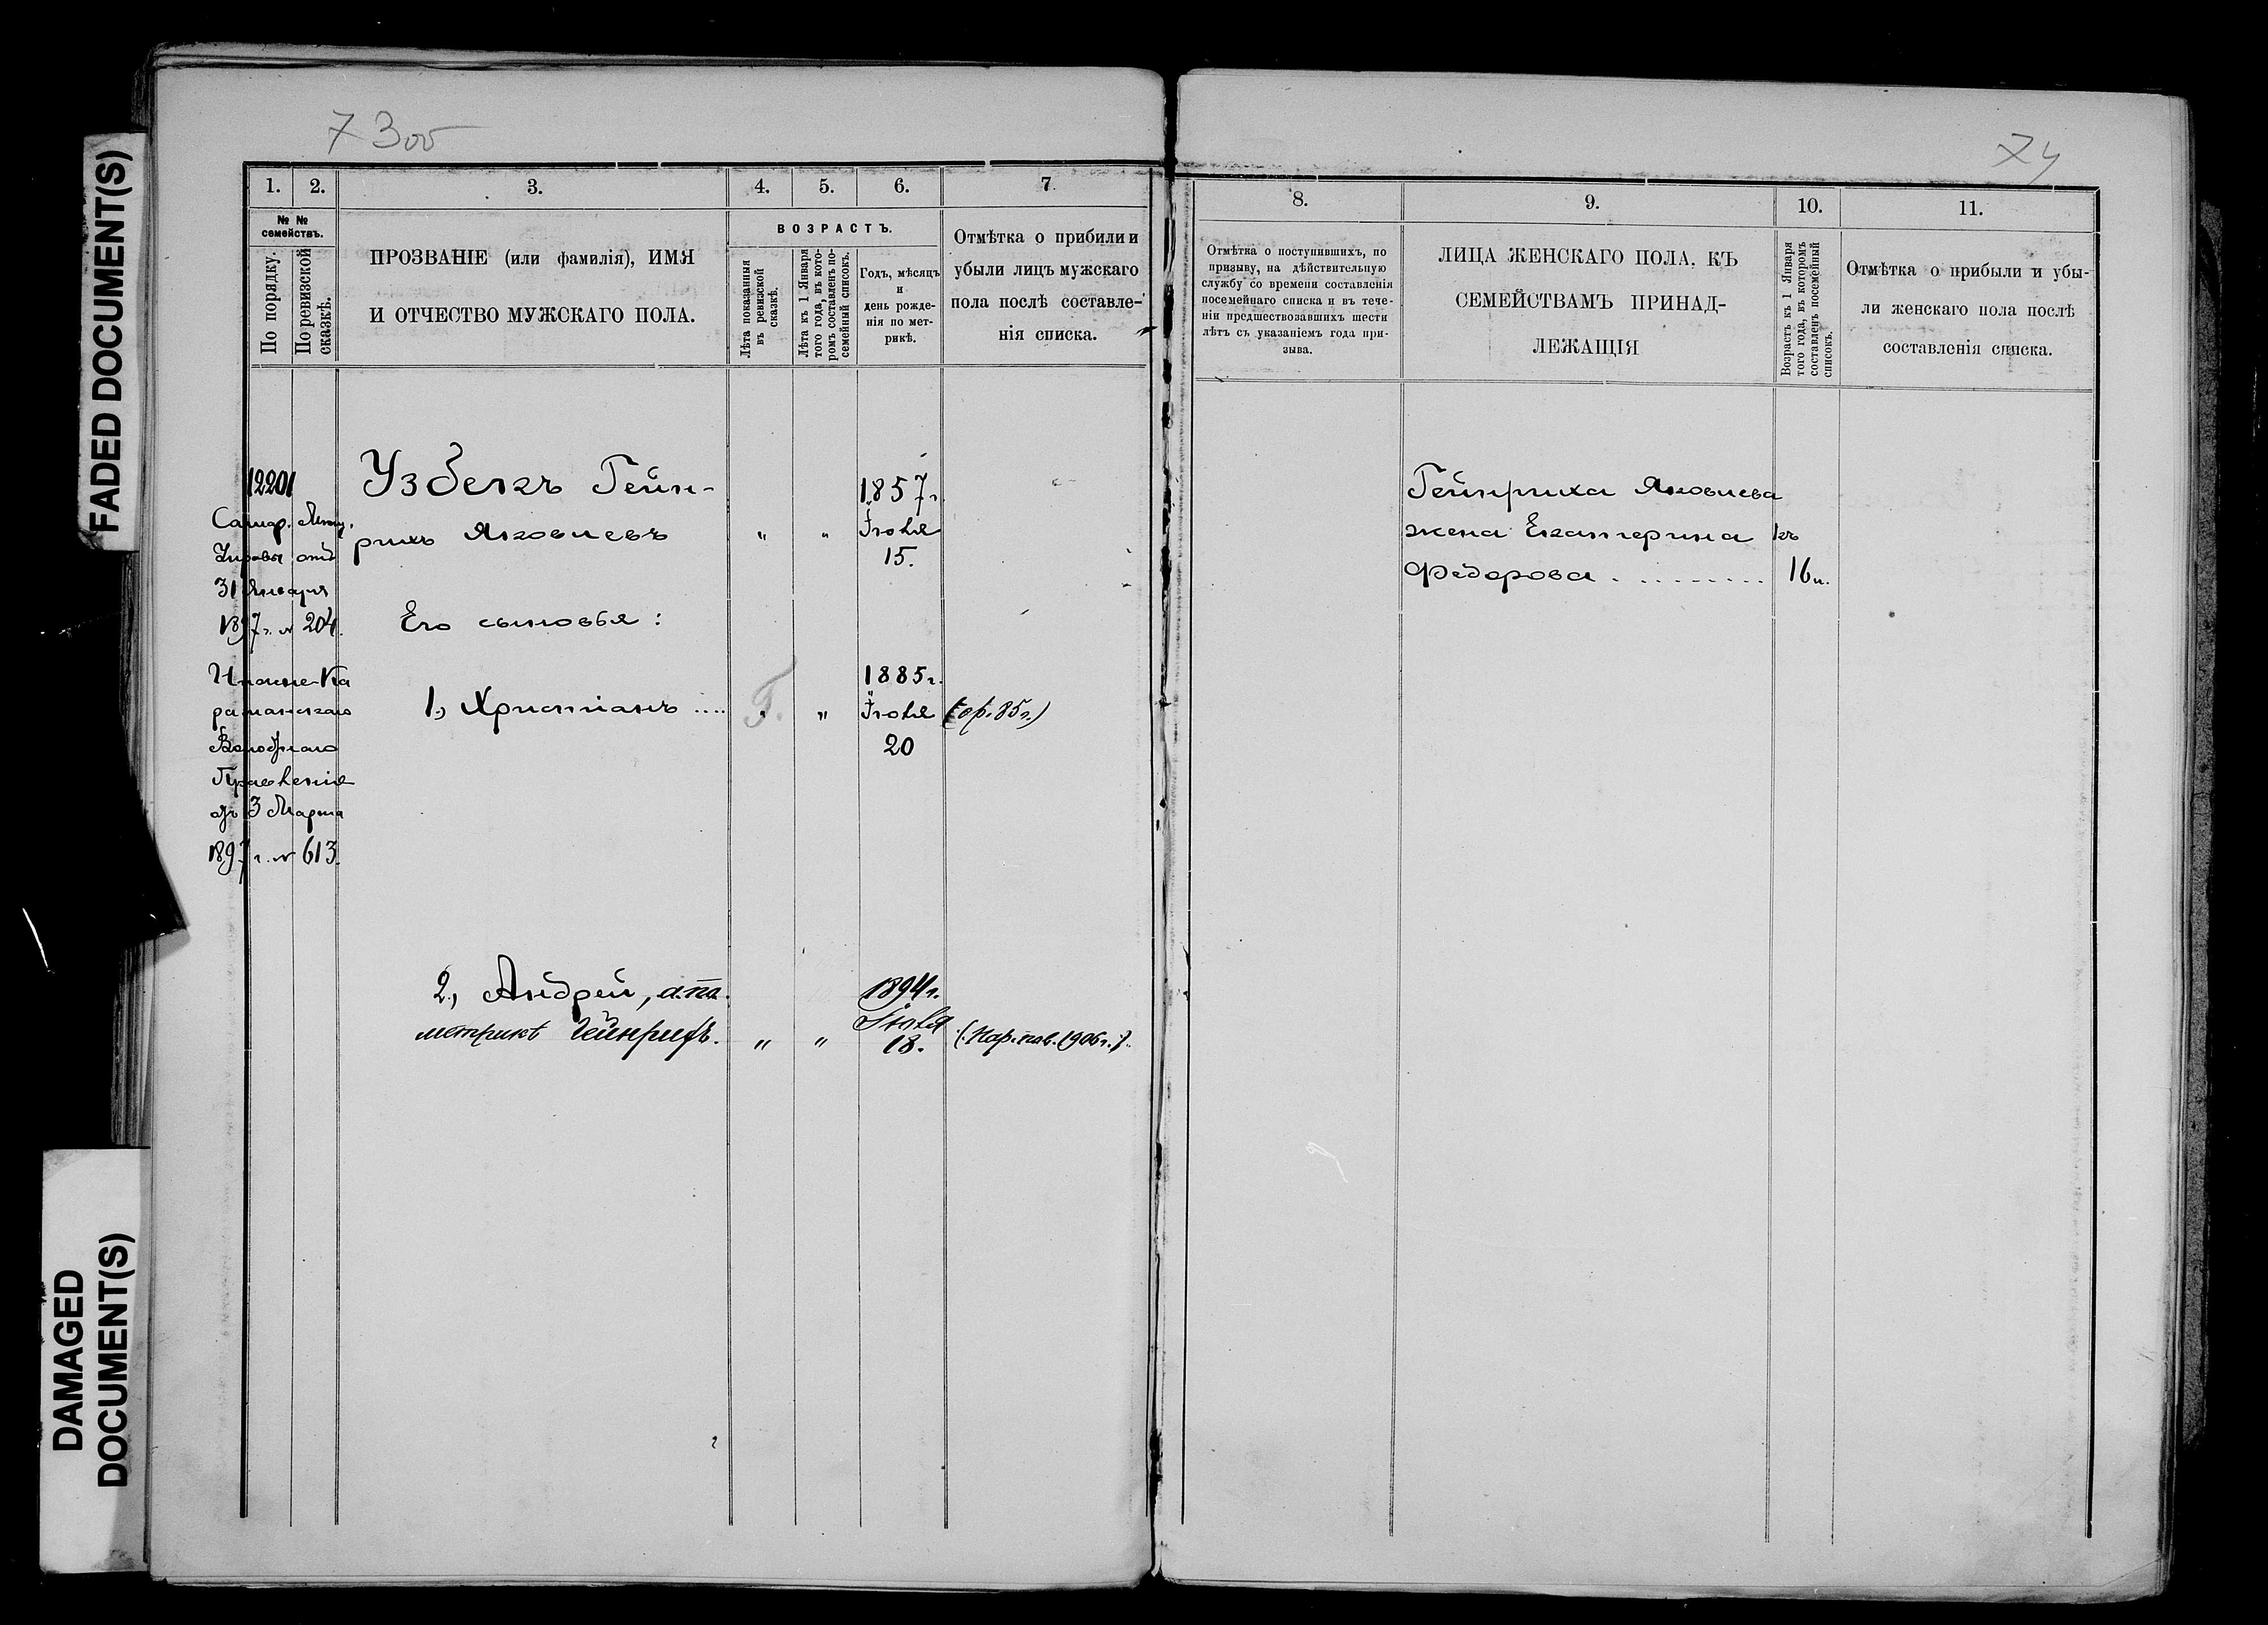 FADED DOCUMENT(S)
DAMAGED
DOCUMENT(S)
7 300
1. 2. 3. 4. 5. 6. 7.
№ №
семействъ.
По порядку.
По ревизской
сказкѣ.
ПРОЗВАНІЕ (или фамилія), ИМЯ
И ОТЧЕСТВО МУЖСКАГО ПОЛА.
ВОЗРАСТЪ.
Лѣта показанныя
въ ревизской
сказкѣ.
Лѣта къ 1 Января
того года, въ кото-
ромъ составленъ по-
семейный списокъ.
Годъ, мѣсяцъ
и
день рожде-
нія по мет-
рикѣ.
Отмѣтка о прибыли и
убыли лицъ мужскаго
пола послѣ составле-
нія списка.
12201
Самар.
Управы отъ
31 Января
1897 г. № 204.
Волостнаго
Правленія
отъ 3 Марта
1897 г. № 613.
Узбекъ Гейн-
рихъ Яковлевъ " "
1857 г.
Іюля
15.
Его сыновья:
1, Христіанъ .... "
1885 г.
Іюля
20
(ор. 85 г.)
2, Андрей, а по
метрикѣ Гейнрихъ. " "
1894 г.
Іюля
18.
(Нар. пов. 1906 г.).
8. 9. 10. 11.
Отмѣтка о поступившихъ, по
призыву, на дѣйствительную
службу со времени составленія
посемейнаго списка и въ тече-
ніи предшествозавшихъ шести
лѣтъ съ указаніемъ года при-
зыва.
ЛИЦА ЖЕНСКАГО ПОЛА, КЪ
СЕМЕЙСТВАМЪ ПРИНАД-
ЛЕЖАЩІЯ
Возрастъ къ 1 Января
того года, въ которомъ
составленъ посемейный
списокъ.
Отмѣтка о прибыли и убы-
ли женскаго пола послѣ
составленія списка.
Гейнриха Яковлева
жена Екатерина
Федорова . . . . . . . . . 16